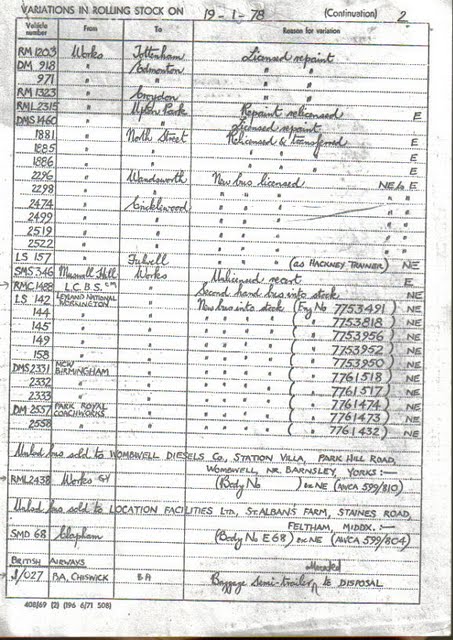 VARIATIONS IN ROLLING STOCK ON 19-1-78 (Continuation) 2
Vehicle number From To Reason for variation
RM 1203 Works Tottenham Licensed repaint
DM 918 " Edmonton " "
971 " " " "
RM 1323 " Croydon " "
RML 2315 " Upton Park Repaint relicensed E
DMS 1460 " " Licensed repaint
1881 " North Street Relicensed & transferred E
1885 " " " " E
1886 " " " " E
2296 " Wandsworth New bus licensed NE to E
2298 " " " " "
2474 " Cricklewood " " "
2499 " " " " "
2519 " " " " "
2522 " " " " "
LS 157 " Fulwell (as HACKNEY TRAINER) NE
SMS 346 Muswell Hill Works Unlicensed recert E
RMC 1488 L.C.B.S. " Second hand bus into stock NE
LS 142 LEYLAND NATIONAL WORKINGTON " New bus into stock (Eng No 7753491) NE
144 " " " " " ( " 7753818) NE
145 " " " " " ( " 7753956) NE
149 " " " " " ( " 7753952) NE
158 " " " " " ( " 7753950) NE
DMS 2331 MCW BIRMINGHAM " " " " ( " 7761518) NE
2332 " " " " " ( " 7761517) NE
2333 " " " " " ( " 7761474) NE
DM 2557 PARK ROYAL COACHWORKS " " " " ( " 7761473) NE
2558 " " " " " ( " 7761432) NE
Unlicd bus sold to WOMBWELL DIESELS Co., STATION VILLA, PARK HILL ROAD,
WOMBWELL, NR. BARNSLEY, YORKS :—
RML 2438 Works (Body No ) Ex NE (AWCA 599/810)
Unlicd bus sold to LOCATION FACILITIES LTD, ST. ALBANS FARM, STAINES ROAD,
FELTHAM, MIDDX. :—
SMD 68 Clapham (Body No E 68) Ex NE (AWCA 599/804)
BRITISH AIRWAYS
/027 BA, CHISWICK BA Baggage semi-trailer to DISPOSAL
408/69 (2) (196 6/71 508)